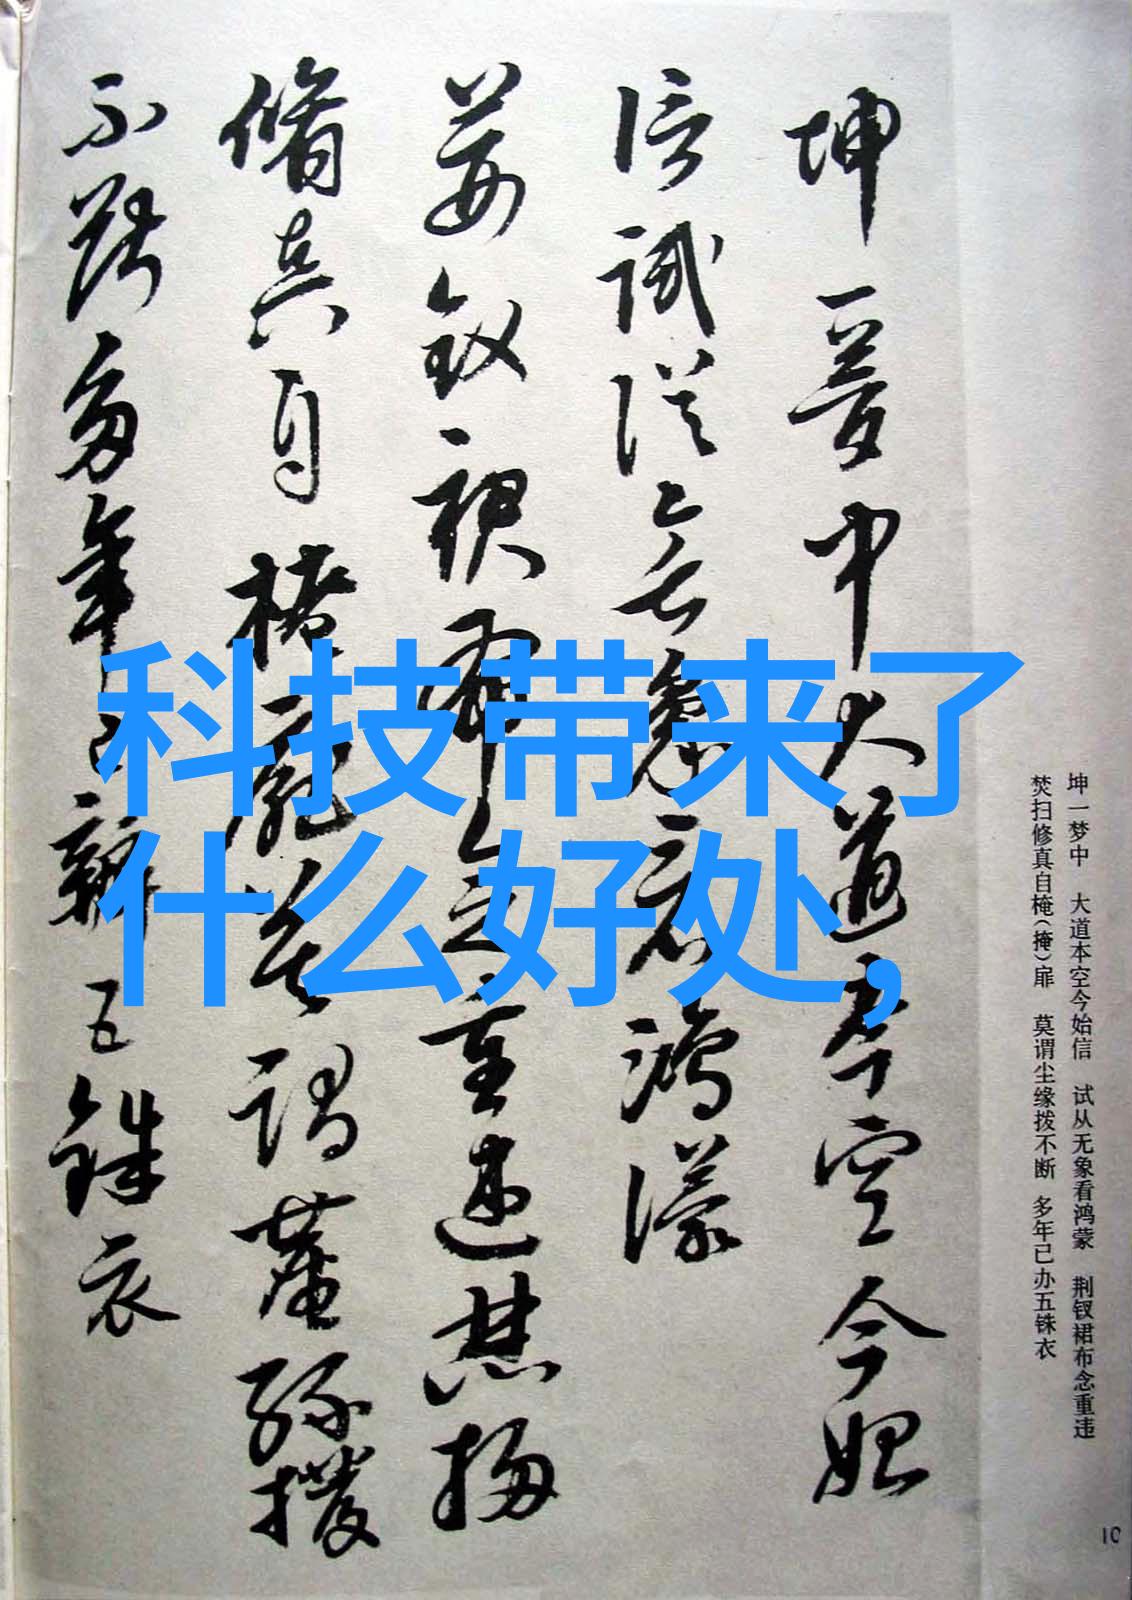 坤一夢中大道本空今始
信試從無象看鴻濛
荆釵裙布念重違焚掃
脩真自扉莫謂塵緣撥
不斷多年已辦五銖衣
科技带来了
什么好处,
坤一梦中 大道本空今始信 试从无象看鸿蒙 荆钗裙布念重违
焚扫修真自(掩)扉 莫谓尘缘拨不断 多年已办五铢衣
10